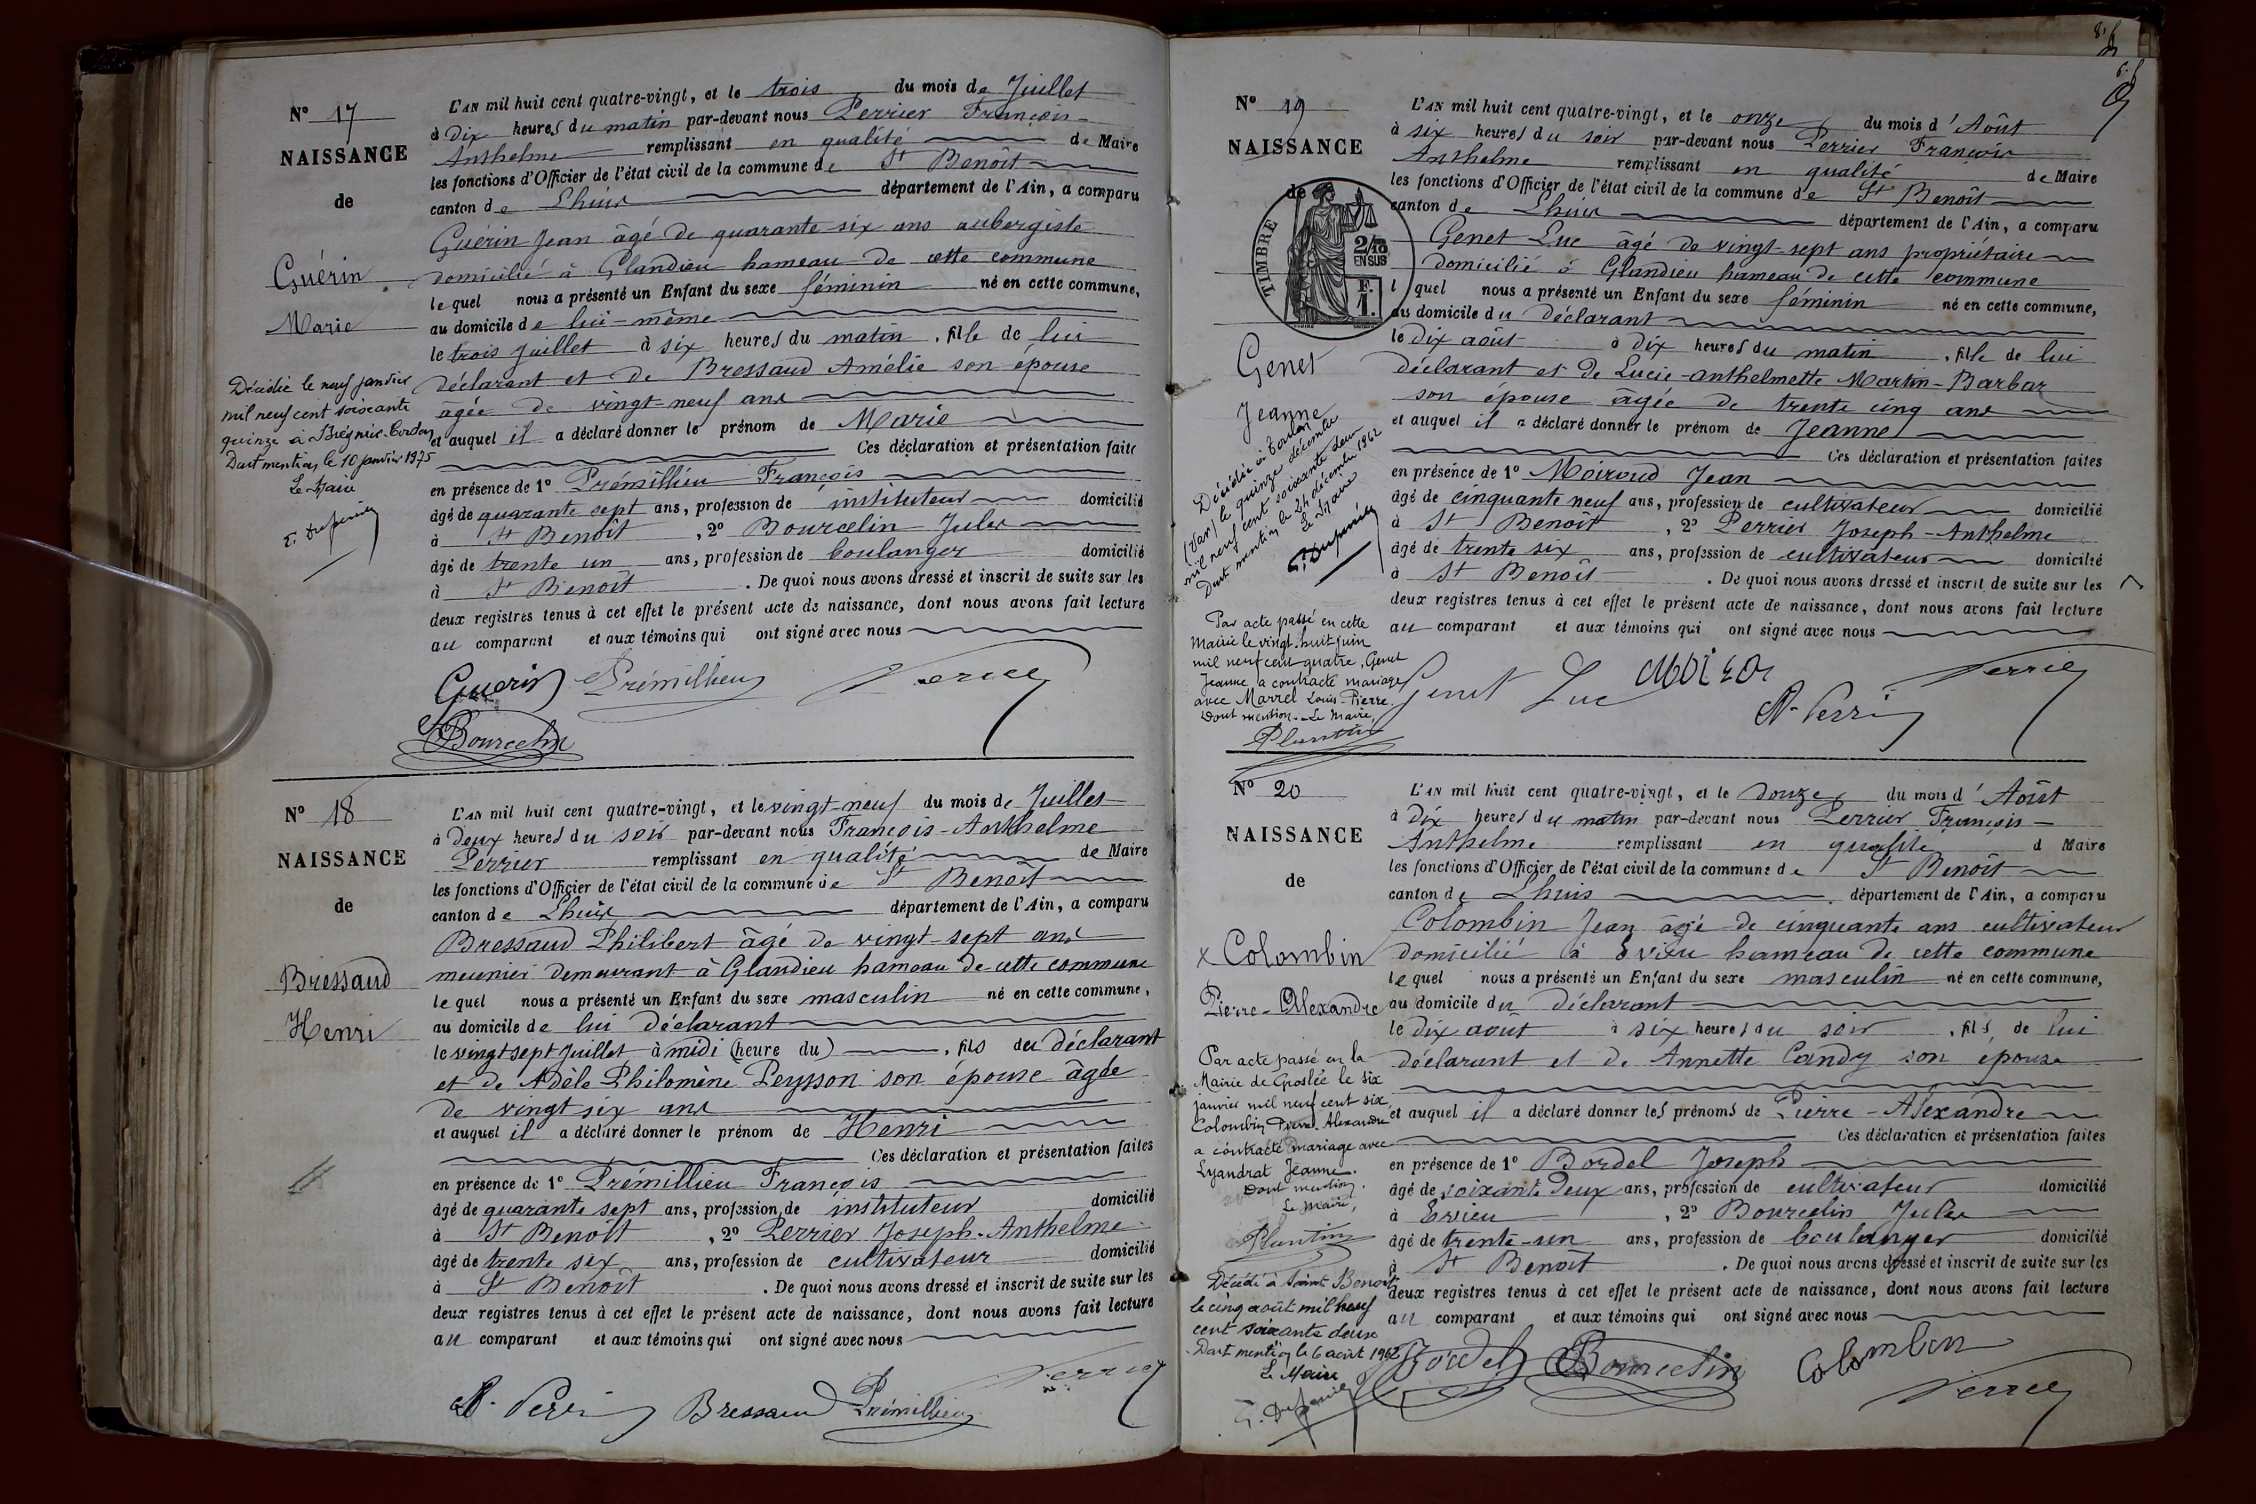 Nº 17
NAISSANCE
de
Guérin
Marie
Décédée le neuf janvier
mil neuf cent soixante
quinze à Brégnier-Cordon
Dont mention le 10 janvier 1975
Le Maire
L'AN mil huit cent quatre-vingt, et le trois du mois de Juillet
à dix heures du matin par-devant nous Perrier François-
Anthelme remplissant en qualité de Maire
les fonctions d'Officier de l'état civil de la commune de St Benoît
canton de Lhuis département de l'Ain, a comparu
Guérin Jean âgé de quarante-six ans aubergiste
domicilié à Glandieu hameau de cette commune
lequel nous a présenté un Enfant du sexe féminin né en cette commune,
au domicile de lui-même
le trois Juillet à six heures du matin, fille de lui
déclarant et de Bressaud Amélie son épouse
âgée de vingt-neuf ans
et auquel il a déclaré donner le prénom de Marie
Ces déclaration et présentation faite
en présence de 1º Prémillieu François
âgé de quarante sept ans, profession de instituteur domicilié
à St Benoît, 2º Bourcelin Jules
âgé de trente un ans, profession de boulanger domicilié
à St Benoît. De quoi nous avons dressé et inscrit de suite sur les
deux registres tenus à cet effet le présent acte de naissance, dont nous avons fait lecture
au comparant et aux témoins qui ont signé avec nous
Guerin Prémillieu Perrier
Bourcelin
Nº 18
NAISSANCE
de
Bressaud
Henri
L'AN mil huit cent quatre-vingt, et le vingt-neuf du mois de Juillet
à deux heures du soir par-devant nous François-Anthelme
Perrier remplissant en qualité de Maire
les fonctions d'Officier de l'état civil de la commune de St Benoît
canton de Lhuis département de l'Ain, a comparu
Bressaud Philibert âgé de vingt-sept ans
meunier demeurant à Glandieu hameau de cette commune
lequel nous a présenté un Enfant du sexe masculin né en cette commune,
au domicile de lui déclarant
le vingt sept Juillet à midi (heure du), fils du déclarant
et de Adèle Philomène Peysson son épouse âgée
de vingt six ans
et auquel il a déclaré donner le prénom de Henri
Ces déclaration et présentation faites
en présence de 1º Prémillieu François
âgé de quarante sept ans, profession de instituteur domicilié
à St Benoît, 2º Perrier Joseph-Anthelme
âgé de trente six ans, profession de cultivateur domicilié
à St Benoît. De quoi nous avons dressé et inscrit de suite sur les
deux registres tenus à cet effet le présent acte de naissance, dont nous avons fait lecture
au comparant et aux témoins qui ont signé avec nous
Bressaud Prémillieu Perrier
Nº 19
NAISSANCE
de
TIMBRE
2/10
EN SUS
F.
1.
Genet
Jeanne
Décédée à Toulon
(Var) le quinze décembre
mil neuf cent soixante deux
Dont mention le 24 décembre 1962
Le Maire
Par acte passé en cette
Mairie le vingt-huit juin
mil neuf cent quatre, Genet
Jeanne a contracté mariage
avec Marrel Louis-Pierre.
Dont mention. Le Maire,
Plantin
L'AN mil huit cent quatre-vingt, et le onze du mois d'Août
à six heures du soir par-devant nous Perrier François
Anthelme remplissant en qualité de Maire
les fonctions d'Officier de l'état civil de la commune de St Benoît
canton de Lhuis département de l'Ain, a comparu
Genet Luc âgé de vingt-sept ans propriétaire
domicilié à Glandieu hameau de cette commune
lequel nous a présenté un Enfant du sexe féminin né en cette commune,
au domicile du déclarant
le dix août à dix heures du matin, fille de lui
déclarant et de Lucie-anthelmette Martin-Barbaz
son épouse âgée de trente cinq ans
et auquel il a déclaré donner le prénom de Jeanne
Ces déclaration et présentation faites
en présence de 1º Moiroud Jean
âgé de cinquante neuf ans, profession de cultivateur domicilié
à St Benoît, 2º Perrier Joseph-Anthelme
âgé de trente six ans, profession de cultivateur domicilié
à St Benoît. De quoi nous avons dressé et inscrit de suite sur les
deux registres tenus à cet effet le présent acte de naissance, dont nous avons fait lecture
au comparant et aux témoins qui ont signé avec nous
Genet Luc Perrier
Nº 20
NAISSANCE
de
x Colombin
Pierre-Alexandre
Par acte passé en la
Mairie de Groslée le six
janvier mil neuf cent six
Colombin Pierre-Alexandre
a contracté mariage avec
Lyandrat Jeanne.
Dont mention.
Le Maire,
Plantin
Décédé à Saint Benoît
le cinq août mil neuf
cent soixante deux
Dont mention le 6 août 1962
Le Maire
L'AN mil huit cent quatre-vingt, et le douze du mois d'Août
à dix heures du matin par-devant nous Perrier François-
Anthelme remplissant en qualité d Maire
les fonctions d'Officier de l'état civil de la commune de St Benoît
canton de Lhuis département de l'Ain, a comparu
Colombin Jean âgé de cinquante ans cultivateur
domicilié à Evieu hameau de cette commune
lequel nous a présenté un Enfant du sexe masculin né en cette commune,
au domicile du déclarant
le dix août à six heures du soir, fils de lui
déclarant et de Annette Candy son épouse
et auquel il a déclaré donner les prénoms de Pierre-Alexandre
Ces déclaration et présentation faites
en présence de 1º Bordel Joseph
âgé de soixante deux ans, profession de cultivateur domicilié
à Evieu, 2º Bourcelin Jules
âgé de trente-un ans, profession de boulanger domicilié
à St Benoît. De quoi nous avons dressé et inscrit de suite sur les
deux registres tenus à cet effet le présent acte de naissance, dont nous avons fait lecture
au comparant et aux témoins qui ont signé avec nous
Bordel Bourcelin Colombin
Perrier